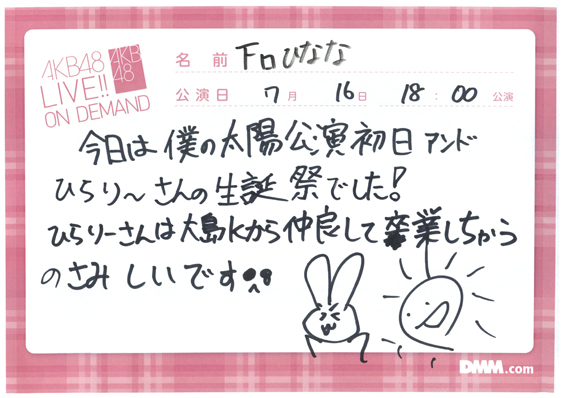 AKB48
LIVE!!
ON DEMAND
AKB
48
名前 下口ひなな
公演日 7月 16日 18:00 公演
今日は僕の太陽公演初日アンド
ひらり〜さんの生誕祭でした!
ひらりーさんは大島Kから仲良して卒業しちゃう
のさみしいです
DMM.com